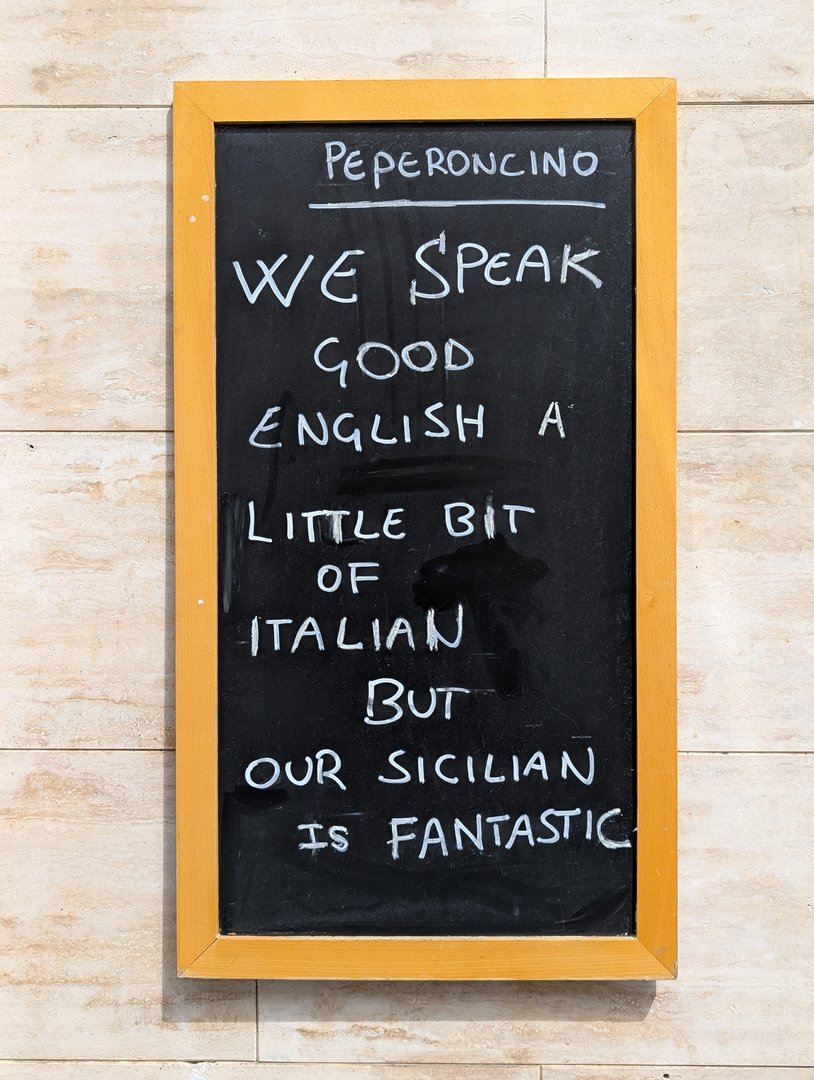 PEPERONCINO
WE SPEAK
GOOD
ENGLISH A
LITTLE BIT
OF
ITALIAN
BUT
OUR SICILIAN
IS FANTASTIC